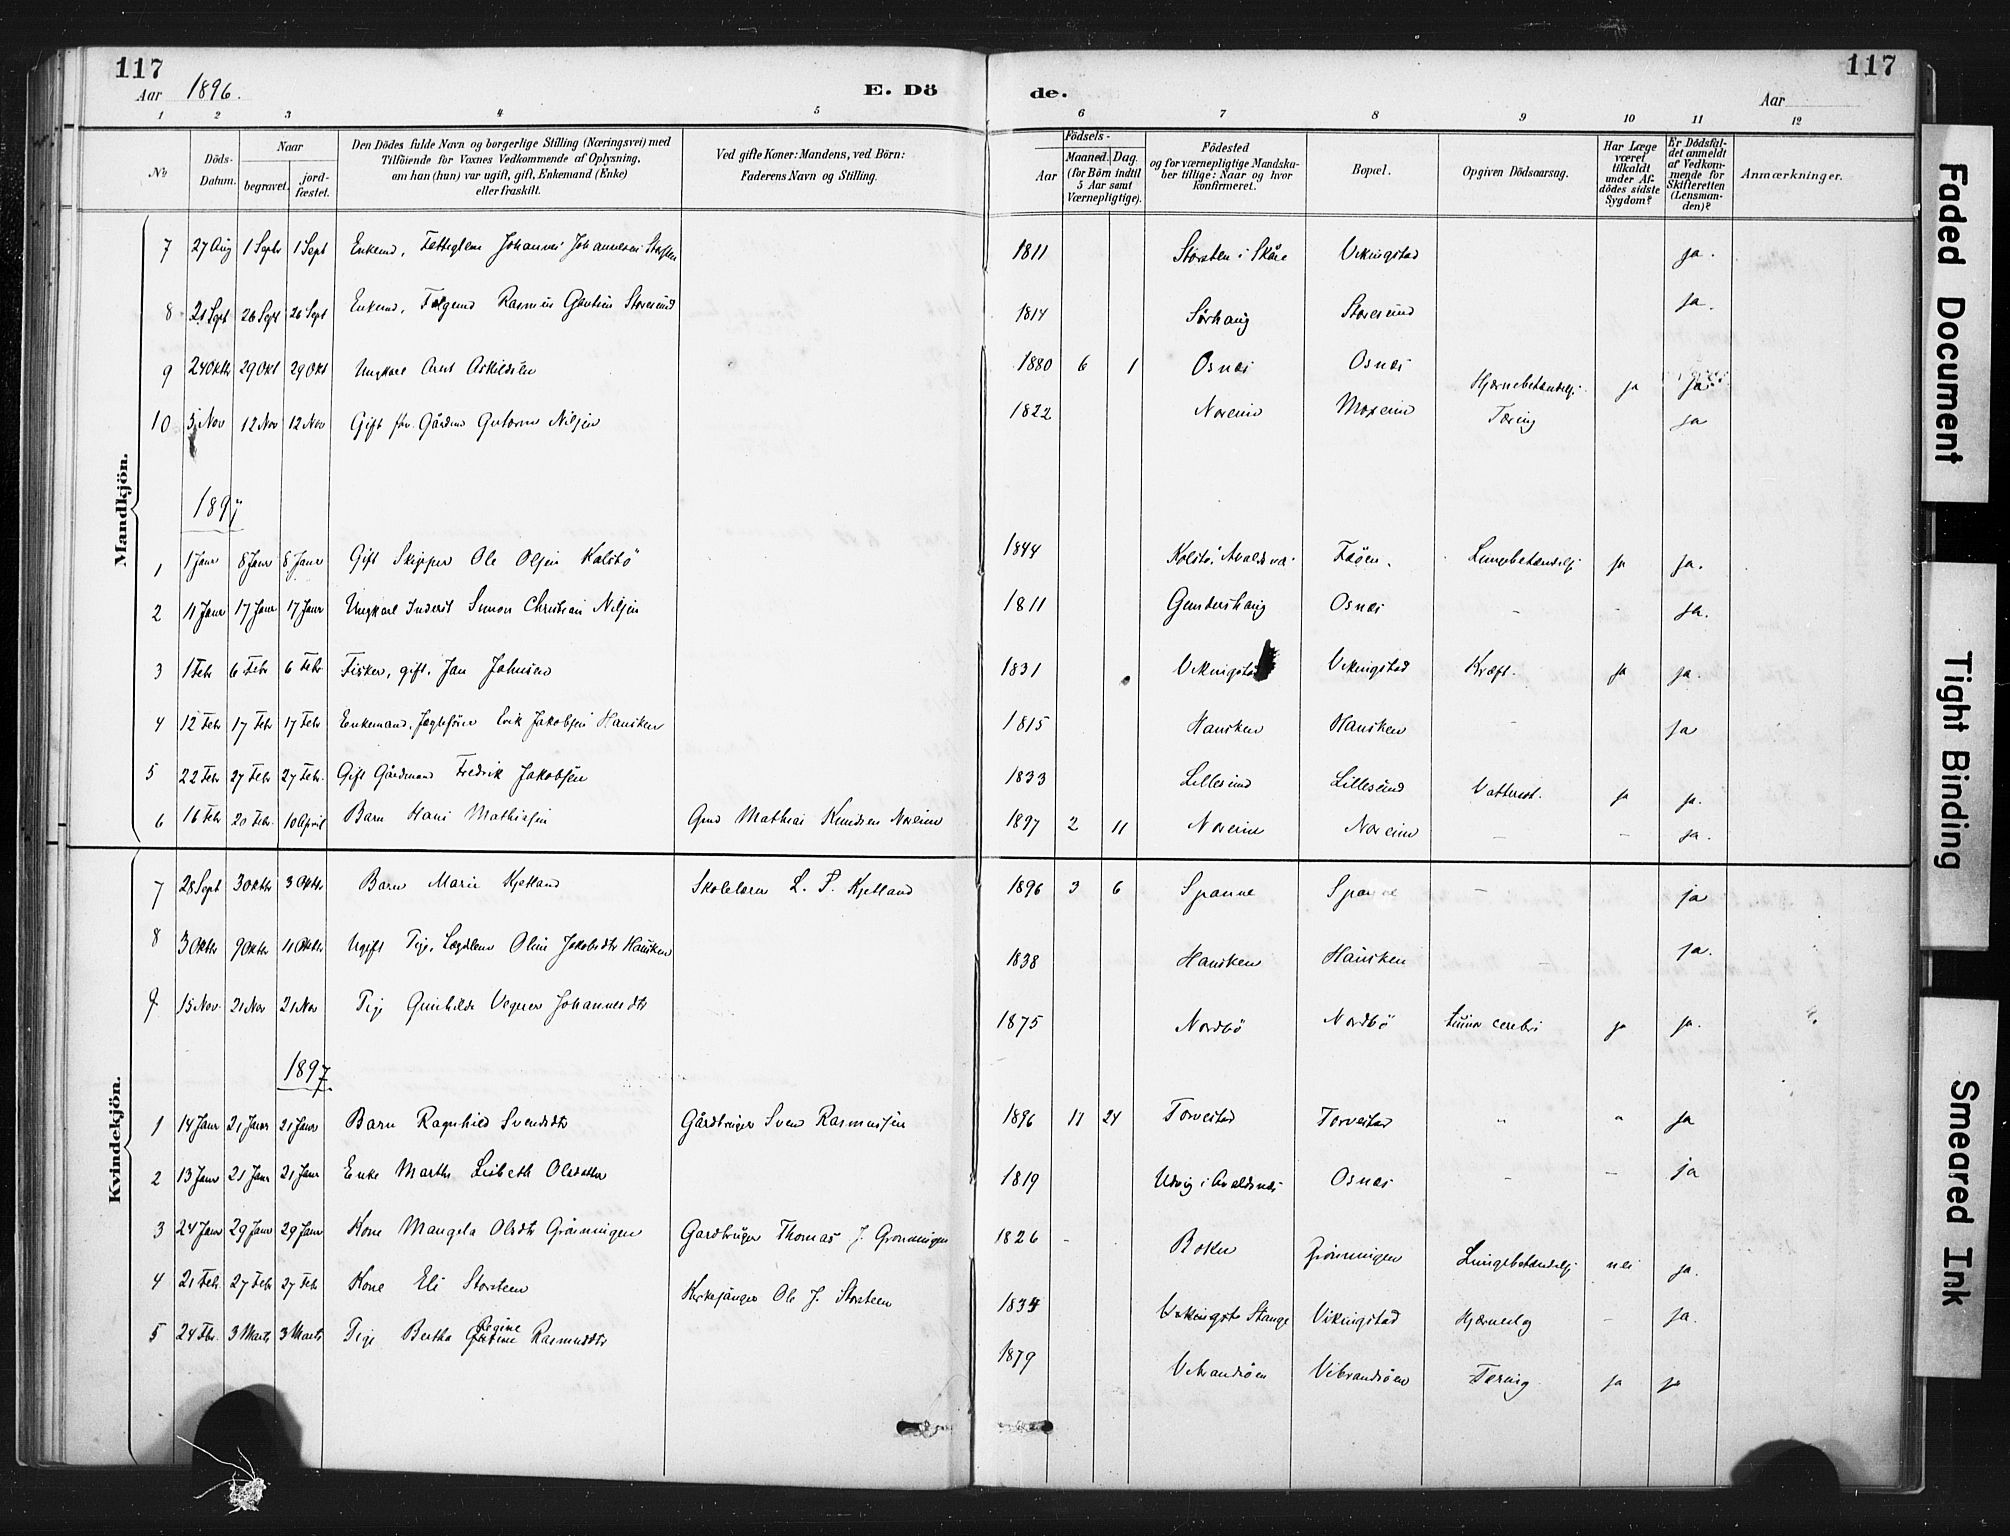 117
117
Aar 1896.
E. Dö
de.
Aar
1 2 3 4 5 6 7 8 9 10 11 12
№
Döds-Datum.
Naar
begravet.
jord-fæstet.
Den Dödes fulde Navn og borgerlige Stilling (Næringsvei) med
Tilföiende for Voxnes Vedkommende af Oplysning,
om han (hun) var ugift, gift, Enkemand (Enke)
eller fraskilt.
Ved gifte Koner: Mandens, ved Börn:
Faderens Navn og Stilling.
Födsels-
Aar
Maaned. Dag.
(for Börn indtil
5 Aar samt
Værnepligtige).
Födested
og for værnepligtige Mandska-
ber tillige: Naar og hvor
konfirmeret.
Bopæl.
Opgiven Dödsaarsag.
Har Læge
været
tilkaldt
under Af-
dödes sidste
Sygdom?
Er Dödsfal-
det anmeldt
af Vedkom-
mende for
Skifteretten
(Lensman-
den)?
Anmærkninger.
Mandkjön.
7 27 Aug 1 Septr 1 Sept Enkemd, Fattiglem Johannes Johannesen 1811 Storsten i Skåre Vikingstad ja.
8 21 Sept 26 Sept 26 Sept Enkemd, Rasmus Storesund 1814 Sörhaug Storesund ja.
9 24 Oktbr 29 Okt 29 Okt Ungkarl Arnt Askildsen 1880 6 1 Osnes Osnes Hjernebetændelse ja ja.
10 5 Nov 12 Nov 12 Nov Gift fhv. Gårdmd Gutorm Nilsen 1822 Noreim Noreim Tæring ja
1897
1 1 Janr 8 Janr 8 Janr Gift Skipper Ole Olsen Kolstö 1844 Kolstö, Feöen. Lungebetændelse ja ja.
2 11 Janr 17 Janr 17 Janr Ungkarl Inderst Simon Christian Nilsen 1811 Gundershaug Osnes - - ja.
3 1 Febr 6 Febr 6 Febr Fisker, gift, Jan Johnsen 1831 Vikingstad Vikingstad Kræft. ja ja.
4 12 Febr 17 Febr 17 Febr Enkemand, Erik Jakobsen Hausken 1815 Hausken Hausken - ja
5 22 Febr 27 Febr 27 Febr. Gift Gårdmand Fredrik Jakobsen 1833 Lillesund Lillesund Vattersot. ja ja.
6 16 Febr 20 Febr. 10 April Barn Hans Mathissen Gmd Mathias Knudsen Noreim 1897 2 11 Noreim Noreim - - ja.
Kvindekjön.
7 28 Sept 3 Oktbr 3 Oktbr Barn Marie Kjetland Skolelærer L. P. Kjetland 1896 3 6 Spanne Spanne - ja
8 3 Oktbr 9 Oktbr 11 Oktbr Ugift Pige, Lægdlem Oline Jakobsdtr Hausken 1838 Hausken Hausken - ja.
9 15 Nov. 21 Nov 21 Nov Pige Gunhilde Johannesdtr 1875 Nordbö Nordbö tumor cerebri ja ja.
1897
1 14 Janr 21 Janr 21 Janr Barn Ragnhild Svendsdtr Gårdbruger Sven Rasmussen 1896 11 24 Torvestad Torvestad " " ja
2 13 Janr 21 Janr 21 Janr Enke Marthe Lisbeth Olsdatter 1819 Utvig i Avaldsnes Osnes - - ja
3 24 Janr 29 Janr 29 Janr Kone Mangela Olsdtr Grönningen Gardbruger Thomas J. Gronningen 1826 - Boken Grönningen Lungebetændelse nei ja.
4 21 Febr. 27 Febr 27 Febr Kone Eli Storsteen Kirkesanger Ole J. Storsteen 1834 Stange Vikingstad Hjerneslag - ja.
5 24 Fbr. 3 Marts 3 Marts Pige Bertha Regine Rasmusdtr 1879 Vibrandsöen Vibrandsöen Tæring ja ja
Faded Document
Tight Binding
Smeared Ink